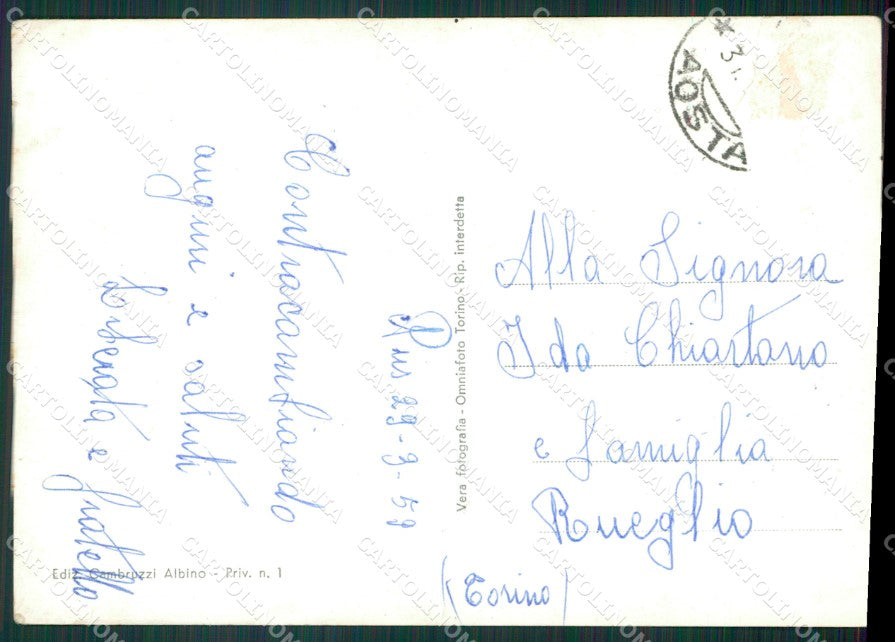 Rus 29-3-59
Contracambiando
auguri e saluti
Liberata e fratello
Ediz. Cambruzzi Albino - Priv. n. 1
Vera fotografia - Omniafoto Torino - Rip. interdetta
AOSTA
Alla Signora
Ida Chiartano
e Famiglia
Rueglio
(Torino)
CARTOLINOMANIA